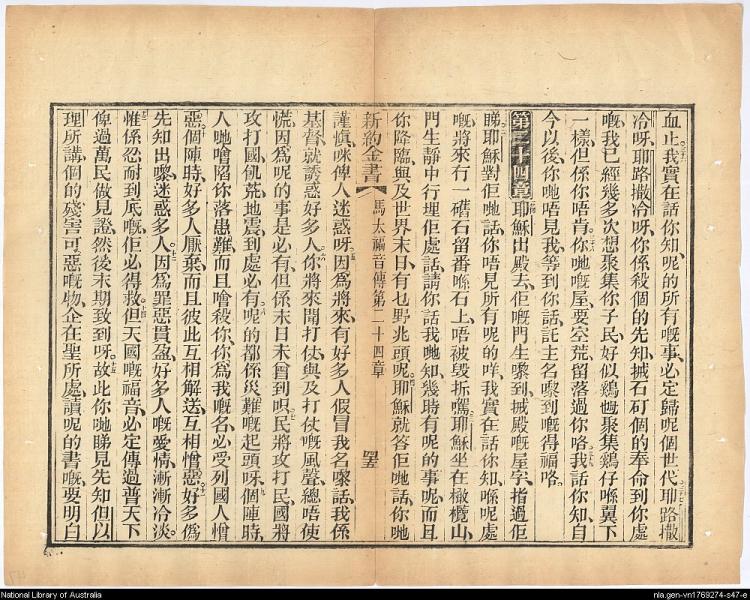 血止我實在話你知呢的所有嘅事必定歸呢個世代耶路撒
冷呀耶路撒冷呀你係殺個的先知㨃石矴個的奉命到你處
嘅我已經幾多次想聚集你子民好似鷄乸聚集鷄仔喺翼下
一樣但係你唔肯你哋嘅屋要空荒留落過你咯我話你知自
今以後你哋唔見我等到你話託主名嚟到嘅得福咯
第二十四章耶穌出殿去佢嘅門生嚟到㨃殿嘅屋宇指過佢
睇耶穌對佢哋話你唔見所有呢的咩我實在話你知喺呢處
嘅將來冇一礸石留番喺石上唔被毀折嘅耶穌坐在橄欖山
門生靜中行埋佢處話請你話我哋知幾時有呢的事呢而且
你降臨與及世界末日有乜野兆頭呢耶穌就答佢哋話你哋
新約全書
馬太福音傳第二十四章
謹愼咪俾人迷惑呀因爲將來有好多人假冒我名嚟話我係
基督就誘惑好多人你將來聞打仗與及打仗嘅風聲總唔使
慌因爲呢的事是必有但係末日未曾到呮民將攻打民國將
攻打國飢荒地震到處必有呢的都係災難嘅起頭呀個陣時
人哋噲陷你落患難而且噲殺你你爲我嘅名必受列國人憎
惡個陣時好多人厭棄而且彼此互相解送互相憎惡好多僞
先知出嚟迷惑多人因爲罪惡貫盈好多人嘅愛情漸漸冷淡
惟係忍耐到底嘅佢必得救但天國嘅福音必定傳過普天下
俾過萬民做見證然後末期致到呀故此你哋睇見先知但以
理所講個的殘害可惡嘅物企在聖所處讀呢的書嘅要明白
National Library of Australia
nla.gen-vn1769274-s47-e